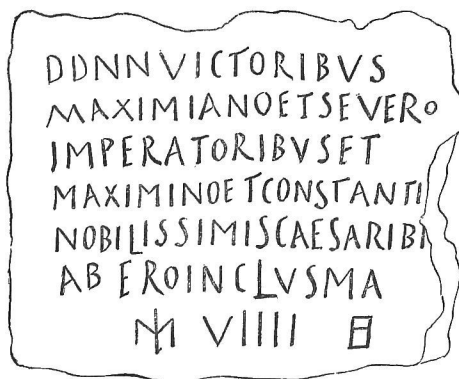 DDNNVICTORIBVS
MAXIMIANOETSEVERO
IMPERATORIBVSET
MAXIMINOETCONSTANTI
NOBILISSIMISCAESARIBI
AB EROINCLVSMA
M VIIII